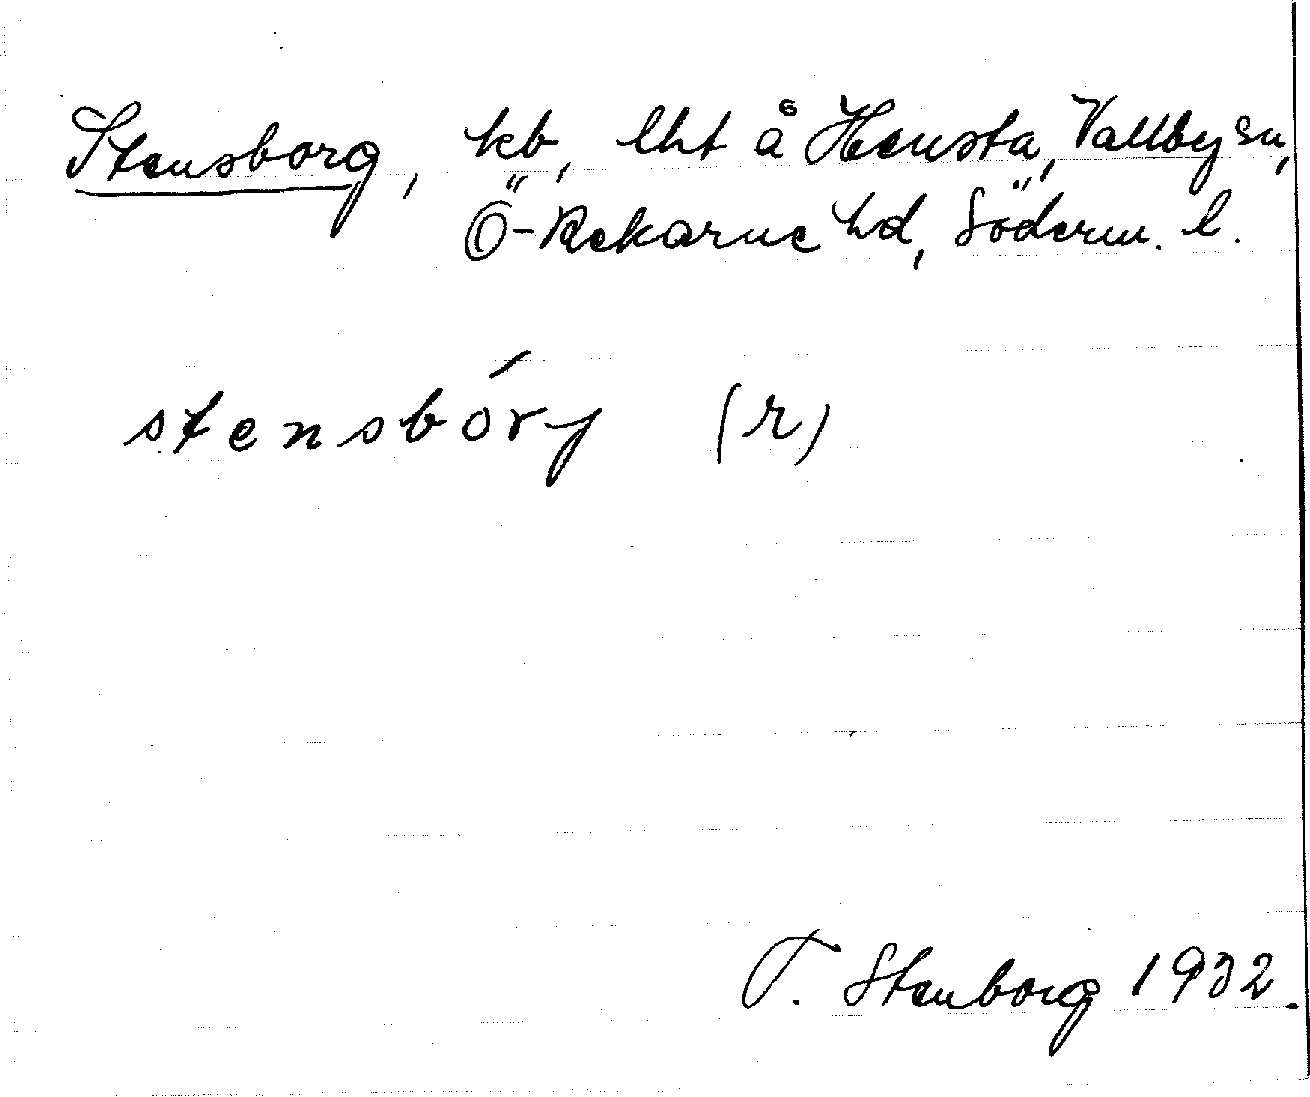 Stensborg, kb, lht å Hensta, Vallby sn,
Ö-Rekarne hd, Söderm. l.
stensbórj (r)
T. Stenborg 1932.